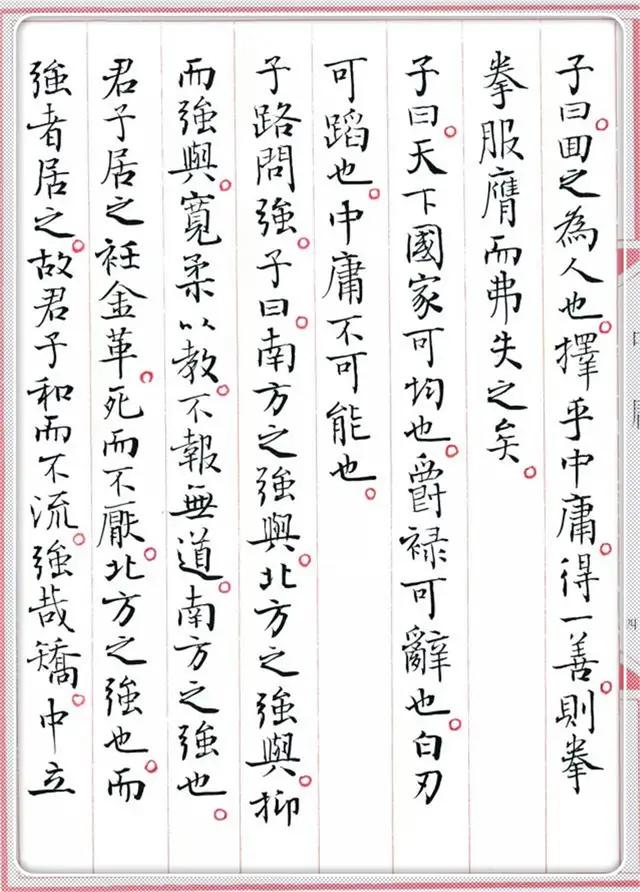 子曰。回之為人也。擇乎中庸。得一善。則拳
拳服膺而弗失之矣。
子曰。天下國家可均也。爵祿可辭也。白刃
可蹈也。中庸不可能也。
子路問強。子曰。南方之強與。北方之強與。抑
而強與。寬柔以教。不報無道。南方之強也。
君子居之衽金革。死而不厭。北方之強也。而
強者居之。故君子和而不流。強哉矯。中立